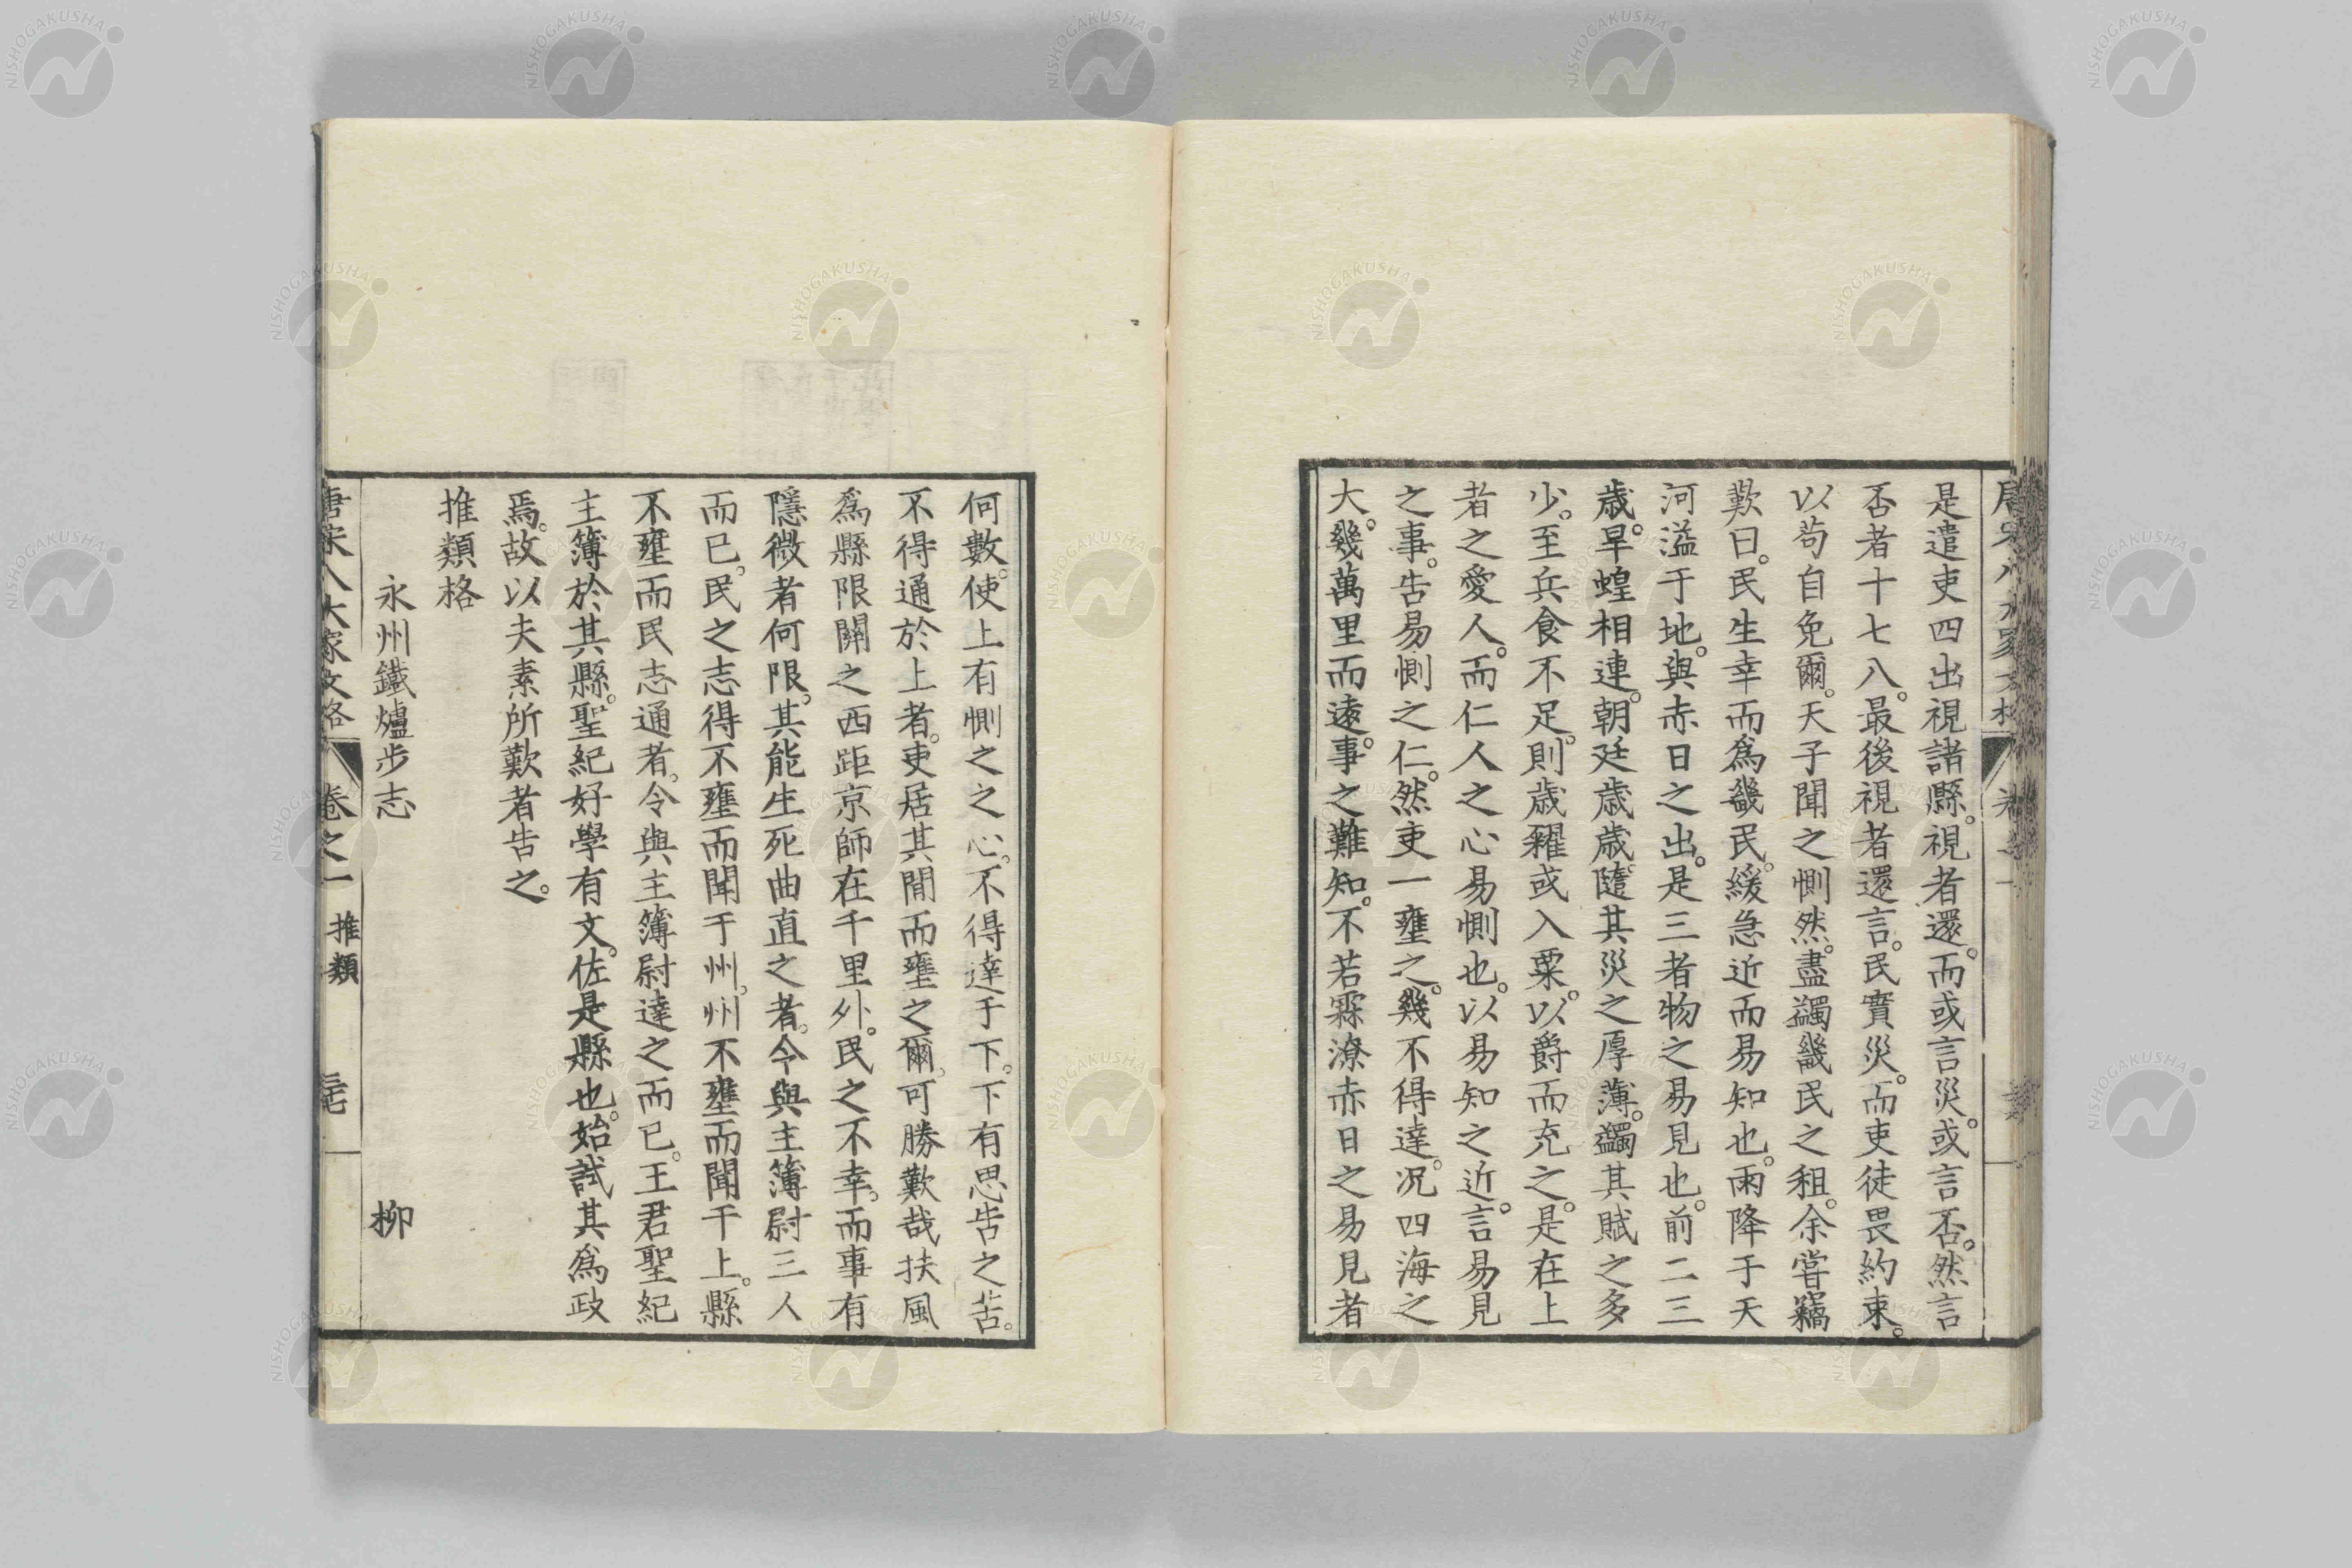 是遣吏四出視諸縣。視者還。而或言災。或言否。然言
否者十七八。最後視者還言。民實災。而吏徒畏約束。
以苟自免爾。天子聞之惻然。盡蠲畿民之租。余嘗竊
歎曰。民生幸而爲畿民。緩急近而易知也。雨降于天
河溢于地。與赤日之出。是三者物之易見也。前二三
歲。旱蝗相連。朝廷歲歲。隨其災之厚薄。蠲其賦之多
少。至兵食不足。則歲糴或入粟。以爵而充之。是在上
者之愛人。而仁人之心易惻也。以易知之近。言易見
之事。告易惻之仁。然吏一壅之。幾不得達。况四海之
大。幾萬里而遠。事之難知。不若霖潦赤日之易見者
何數。使上有惻之之心。不得達于下。下有思告之苦。
不得通於上者。吏居其間而壅之爾。可勝歎哉扶風
爲縣限關之西距京師在千里外。民之不幸。而事有
隱微者何限。其能生死曲直之者。令與主簿尉三人
而已。民之志得不壅而聞于州。州不壅而聞于上。縣
不壅而民志通者。令與主簿尉達之而已。王君聖紀
主簿於其縣。聖紀好學有文。佐是縣也。始試其爲政
焉。故以夫素所歎者告之。
推類格
永州鐵爐步志 柳
唐宋八大家文格 卷之一 推類